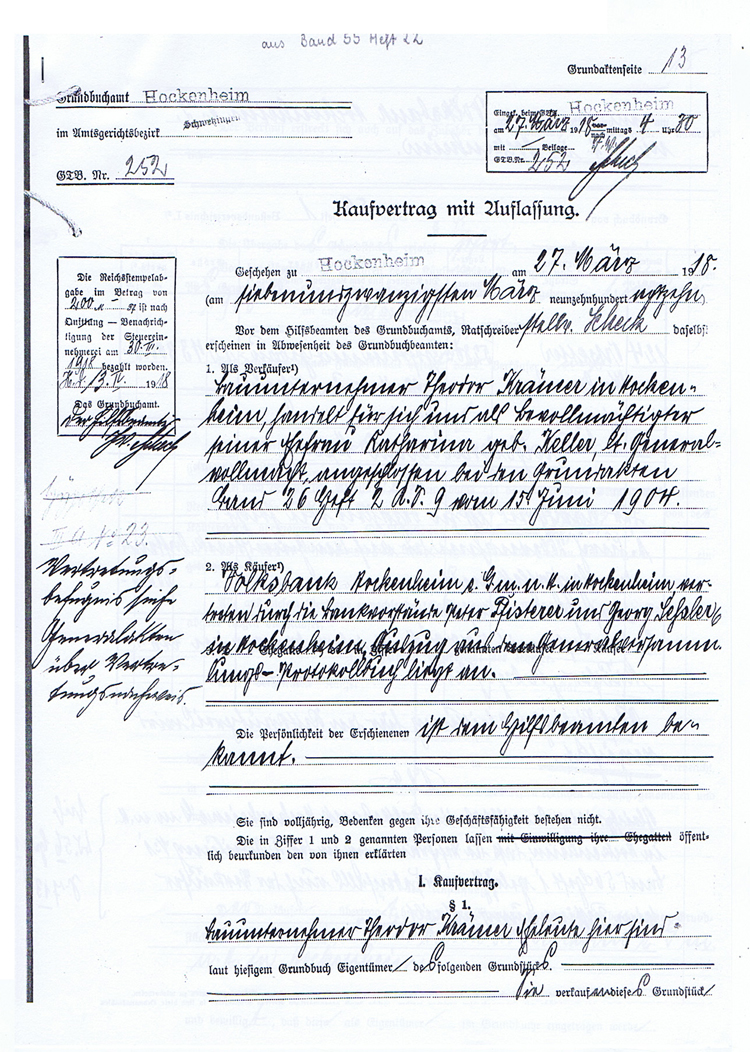 aus Band 55 Heft 22
Grundaktenseite 13
Grundbuchamt Hockenheim
im Amtsgerichtsbezirk Schwetzingen
GTB. Nr. 252
Hockenheim
am 27. März 1918 mittags 4 Uhr 30
mit Beilage
GTB.Nr. 252
Kaufvertrag mit Auflassung.
Die Reichsstempelab-
gabe im Betrag von
200 M ist nach
Quittung — Benachrich-
tigung der Steuerein-
nehmerei am 30. III.
1918 bezahlt worden.
13. IV. 1918
Das Grundbuchamt.
Geschehen zu Hockenheim am 27. März 1918.
(am siebenundzwanzigsten März neunzehnhundert achtzehn)
Vor dem Hilfsbeamten des Grundbuchamts, Ratschreiber stellv. Scheck daselbst
erscheinen in Abwesenheit des Grundbuchbeamten:
1. Als Verkäufer¹)
Bauunternehmer Theodor Krämer in Hocken-
heim, handelt für sich und als Bevollmächtigter
seiner Ehefrau Katharina geb. Keller, lt. General-
vollmacht, angeschlossen bei den Grundakten
Band 26 Heft 2 A.S. 9 vom 15. Juni 1904.
III A No 23.
Vertretungs-
befugnis siehe
Generalakten
über Vertre-
tungsnachweis
2. Als Käufer²)
Volksbank Hockenheim e. G. m. u. H. in Hockenheim ver-
treten durch die Bankvorstände Peter Pfisterer und Georg
in Hockenheim, Auszug aus dem Generalversamm
lungs-Protokollbuch liegt an.
Die Persönlichkeit der Erschienenen ist dem Hilfsbeamten be-
kannt.
Sie sind volljährig, Bedenken gegen ihre Geschäftsfähigkeit bestehen nicht.
Die in Ziffer 1 und 2 genannten Personen lassen mit Einwilligung ihre Ehegatten öffent-
lich beurkunden den von ihnen erklärten
I. Kaufvertrag.
§ 1.
Bauunternehmer Theodor Krämer Eheleute hier sind
laut hiesigem Grundbuch Eigentümer des folgenden Grundstücks.
Sie verkaufen dieses Grundstück